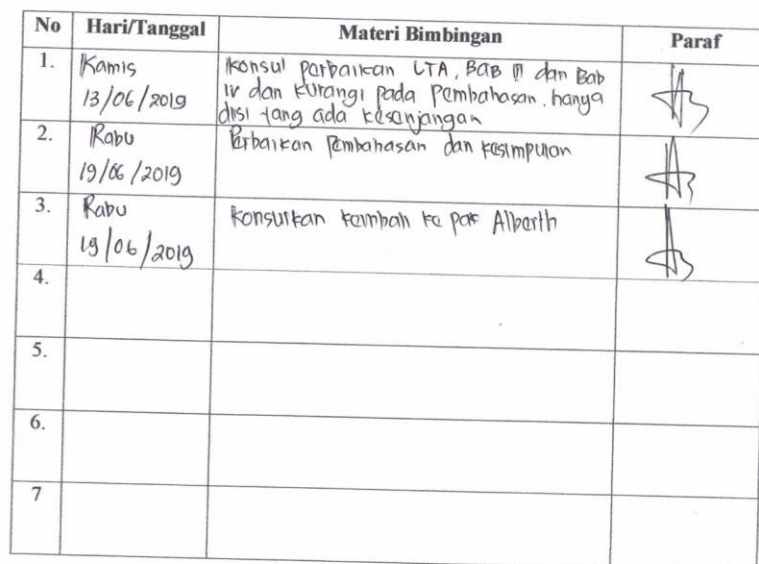 No Hari/Tanggal Materi Bimbingan Paraf
1. Kamis Konsul perbaikan LTA, BAB III dan Bab
13/06/2019 IV dan kurangi pada Pembahasan. hanya
diisi yang ada kesenjangan
2. Rabu Perbaikan Pembahasan dan kesimpulan
19/06/2019
3. Rabu Konsulkan kembali ke pak Alberth
19/06/2019
4.
5.
6.
7